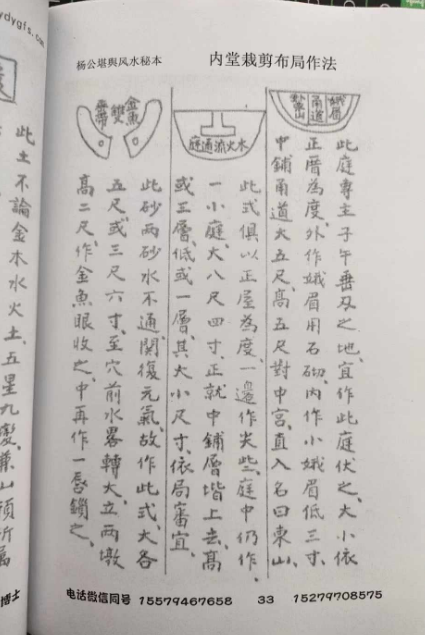 杨公堪舆风水秘本
内堂栽剪布局作法
娥眉
甬道
此庭專主子午垂及之地宜作此庭伏之大小依
正厝為度外作娥眉用石砌内作小娥眉低三寸
中鋪甬道大五尺高五尺對中宮直入名曰東山
木火流通庭
此式俱以正屋為度一邉作尖些庭中仍作
一小庭大八尺四寸正就中鋪層堦上去高
或三層低或一層其大小尺寸依局審宜
金魚
雙
此砂两砂水不通関復元氣故作此式大各
五尺或三尺六寸至穴前水畧轉大立两墩
高二尺作金魚眼收之中再作一唇鎖之
此土不論金木水火土五星九變兼山頂所屬
ydygfs.com
博士
电话微信同号 15579467658 33 15279708575